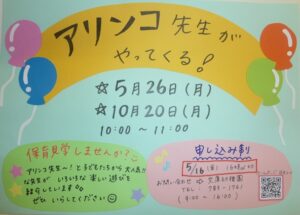 アリンコ先生が
やってくる!
☆5月26日(月)
☆10月20日(月)
10:00 ~ 11:00
保育見学しませんか?
アリンコ先生~!と子どもたちから大人気
な先生が いろいろな楽しい遊びを
紹介しています。
ぜひ いらしてください
申し込み制
5/16(金)
お問い合わせ
TEL:
(9:00 ~ 16:00)